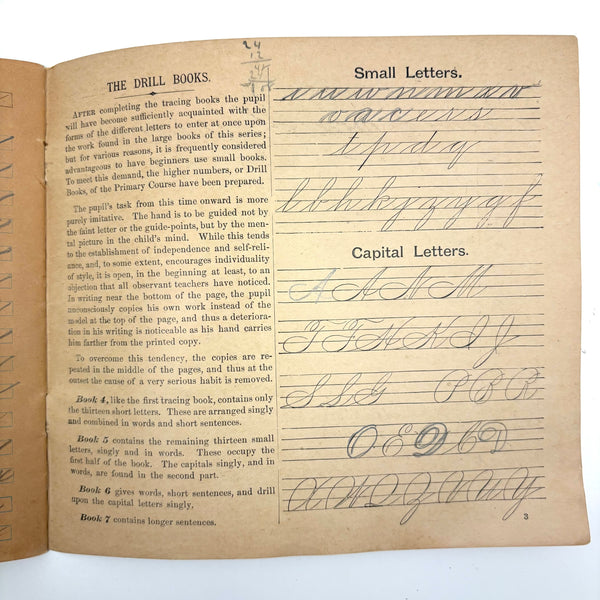 THE DRILL BOOKS.
AFTER completing the tracing books the pupil
will have become sufficiently acquainted with the
forms of the different letters to enter at once upon
the work found in the large books of this series;
but for various reasons, it is frequently considered
advantageous to have beginners use small books.
To meet this demand, the higher numbers, or Drill
Books, of the Primary Course have been prepared.
The pupil's task from this time onward is more
purely imitative. The hand is to be guided not by
the faint letter or the guide-points, but by the men-
tal picture in the child's mind. While this tends
to the establishment of independence and self-reli-
ance, and, to some extent, encourages individuality
of style, it is open, in the beginning at least, to an
objection that all observant teachers have noticed.
In writing near the bottom of the page, the pupil
unconsciously copies his own work instead of the
model at the top of the page, and thus a deteriora-
tion in his writing is noticeable as his hand carries
him farther from the printed copy.
To overcome this tendency, the copies are re-
peated in the middle of the pages, and thus at the
outset the cause of a very serious habit is removed.
Book 4, like the first tracing book, contains only
the thirteen short letters. These are arranged singly
and combined in words and short sentences.
Book 5 contains the remaining thirteen small
letters, singly and in words. These occupy the
first half of the book. The capitals singly, and in
words, are found in the second part.
Book 6 gives words, short sentences, and drill
upon the capital letters singly,
Book 7 contains longer sentences.
24
12
Small Letters.
i u w n m x v
o a c e r s
t p d q
l b h k j z y g f
Capital Letters.
A A N M
T F H K I J
S L G P B R
O E D C D
X W Q Z V U Y
3